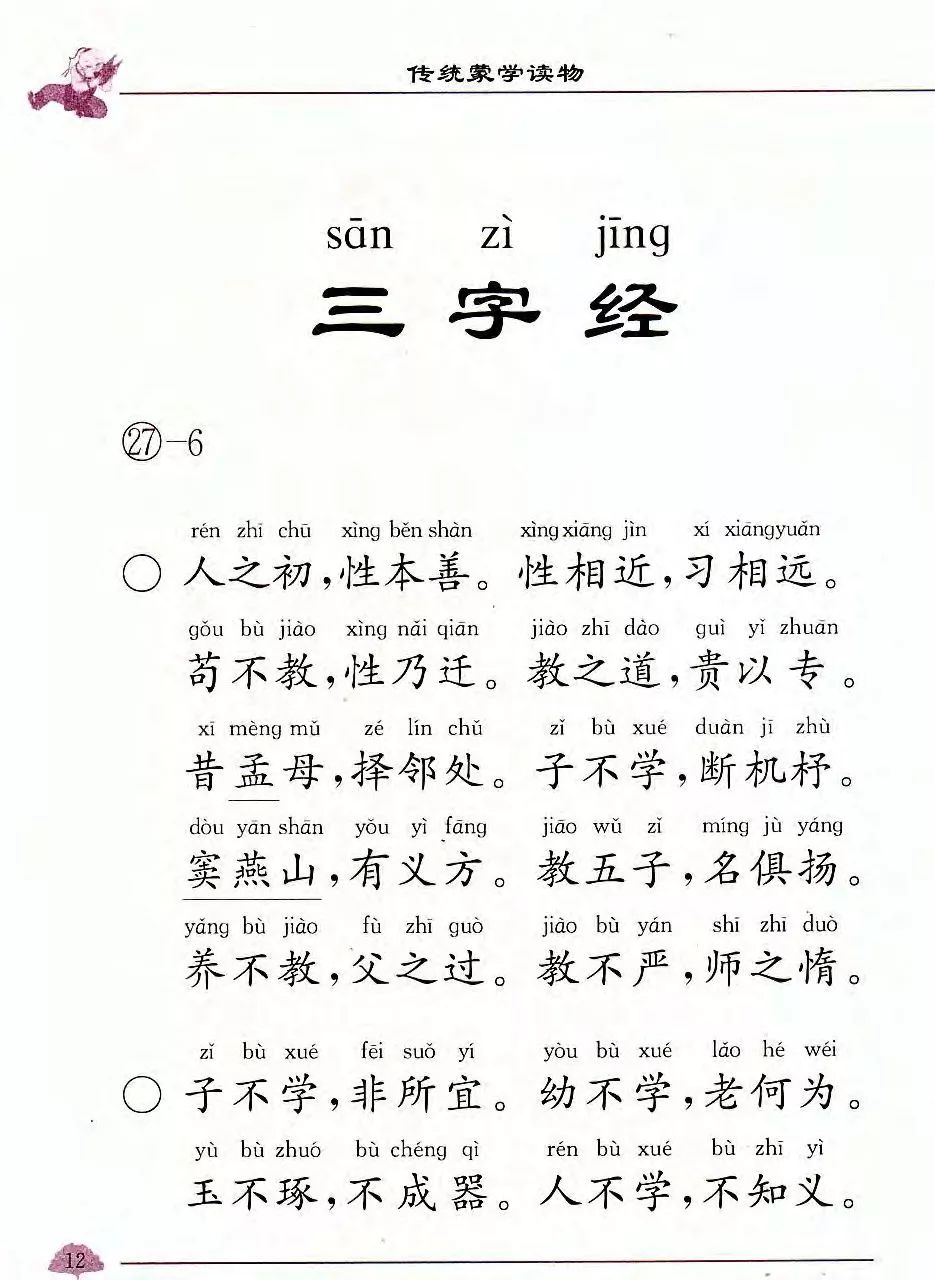 传统蒙学读物
sān zì jīng
三字经
㉗-6
rén zhī chū xìng běn shàn xìng xiāng jìn xí xiāng yuǎn
○ 人之初,性本善。性相近,习相远。
gǒu bù jiào xìng nǎi qiān jiào zhī dào guì yǐ zhuān
苟不教,性乃迁。教之道,贵以专。
xī mèng mǔ zé lín chǔ zǐ bù xué duàn jī zhù
昔孟母,择邻处。子不学,断机杼。
dòu yān shān yǒu yì fāng jiāo wǔ zǐ míng jù yáng
窦燕山,有义方。教五子,名俱扬。
yǎng bù jiào fù zhī guò jiào bù yán shī zhī duò
养不教,父之过。教不严,师之惰。
zǐ bù xué fēi suǒ yí yòu bù xué lǎo hé wéi
○ 子不学,非所宜。幼不学,老何为。
yù bù zhuó bù chéng qì rén bù xué bù zhī yì
玉不琢,不成器。人不学,不知义。
12